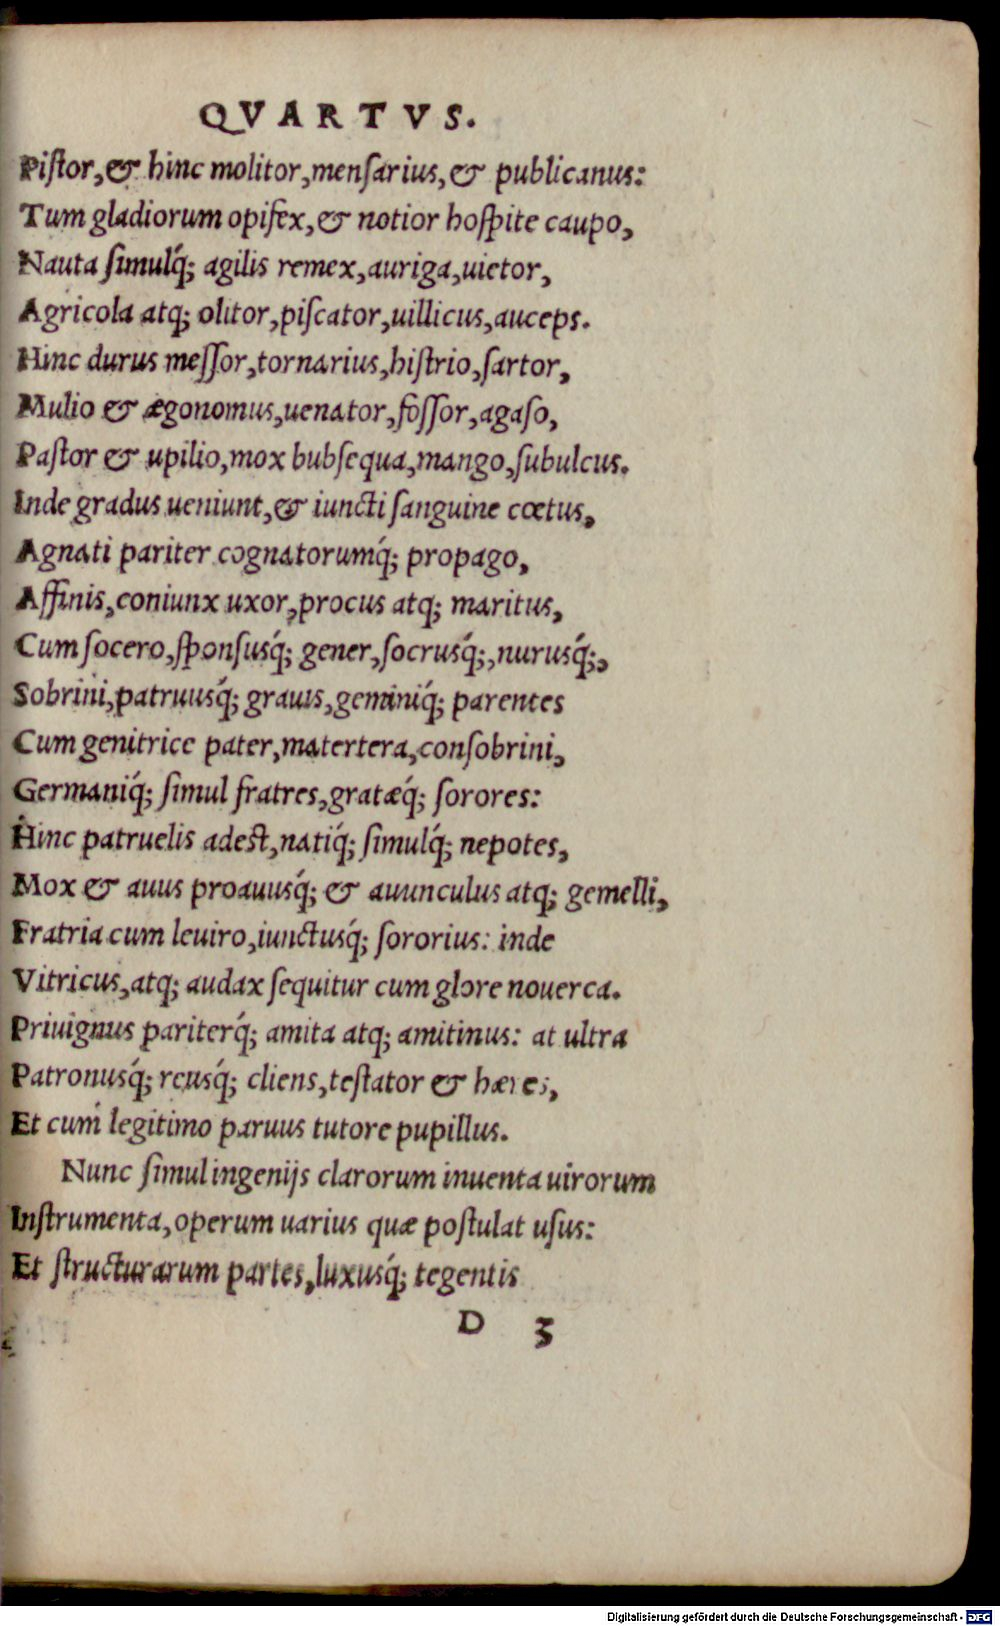 QVARTVS.
Piſtor,& hinc molitor,menſarius,& publicanus:
Tum gladiorum opifex,& notior hoſpite caupo,
Nauta ſimulq́; agilis remex,auriga,uietor,
Agricola atq; olitor,piſcator,uillicus,auceps.
Hinc durus meſſor,tornarius,hiſtrio,ſartor,
Mulio & ægonomus,uenator,foſſor,agaſo,
Paſtor & upilio,mox bubſequa,mango,ſubulcus.
Inde gradus ueniunt,& iuncti ſanguine cœtus,
Agnati pariter cognatorumq́; propago,
Affinis,coniunx uxor,procus atq; maritus,
Cum ſocero,ſponſusq́; gener,ſocrusq́;,nurusq́;,
Sobrini,patruusq́; grauis,geminiq́; parentes
Cum genitrice pater,matertera,conſobrini,
Germaniq́; ſimul fratres,gratæq́; ſorores:
Hinc patruelis adeſt,natiq́; ſimulq́; nepotes,
Mox & auus proauusq́; & auunculus atq; gemelli,
Fratria cum leuiro,iunctusq́; ſororius: inde
Vitricus,atq; audax ſequitur cum glore nouerca.
Priuignus pariterq́; amita atq; amitinus: at ultra
Patronusq́; reusq́; cliens,teſtator & hæres,
Et cum legitimo paruus tutore pupillus.
Nunc ſimul ingenijs clarorum inuenta uirorum
Inſtrumenta,operum uarius quæ poſtulat uſus:
Et ſtructurarum partes,luxusq́; tegentis
D 3
Digitalisierung gefördert durch die Deutsche Forschungsgemeinschaft - DFG